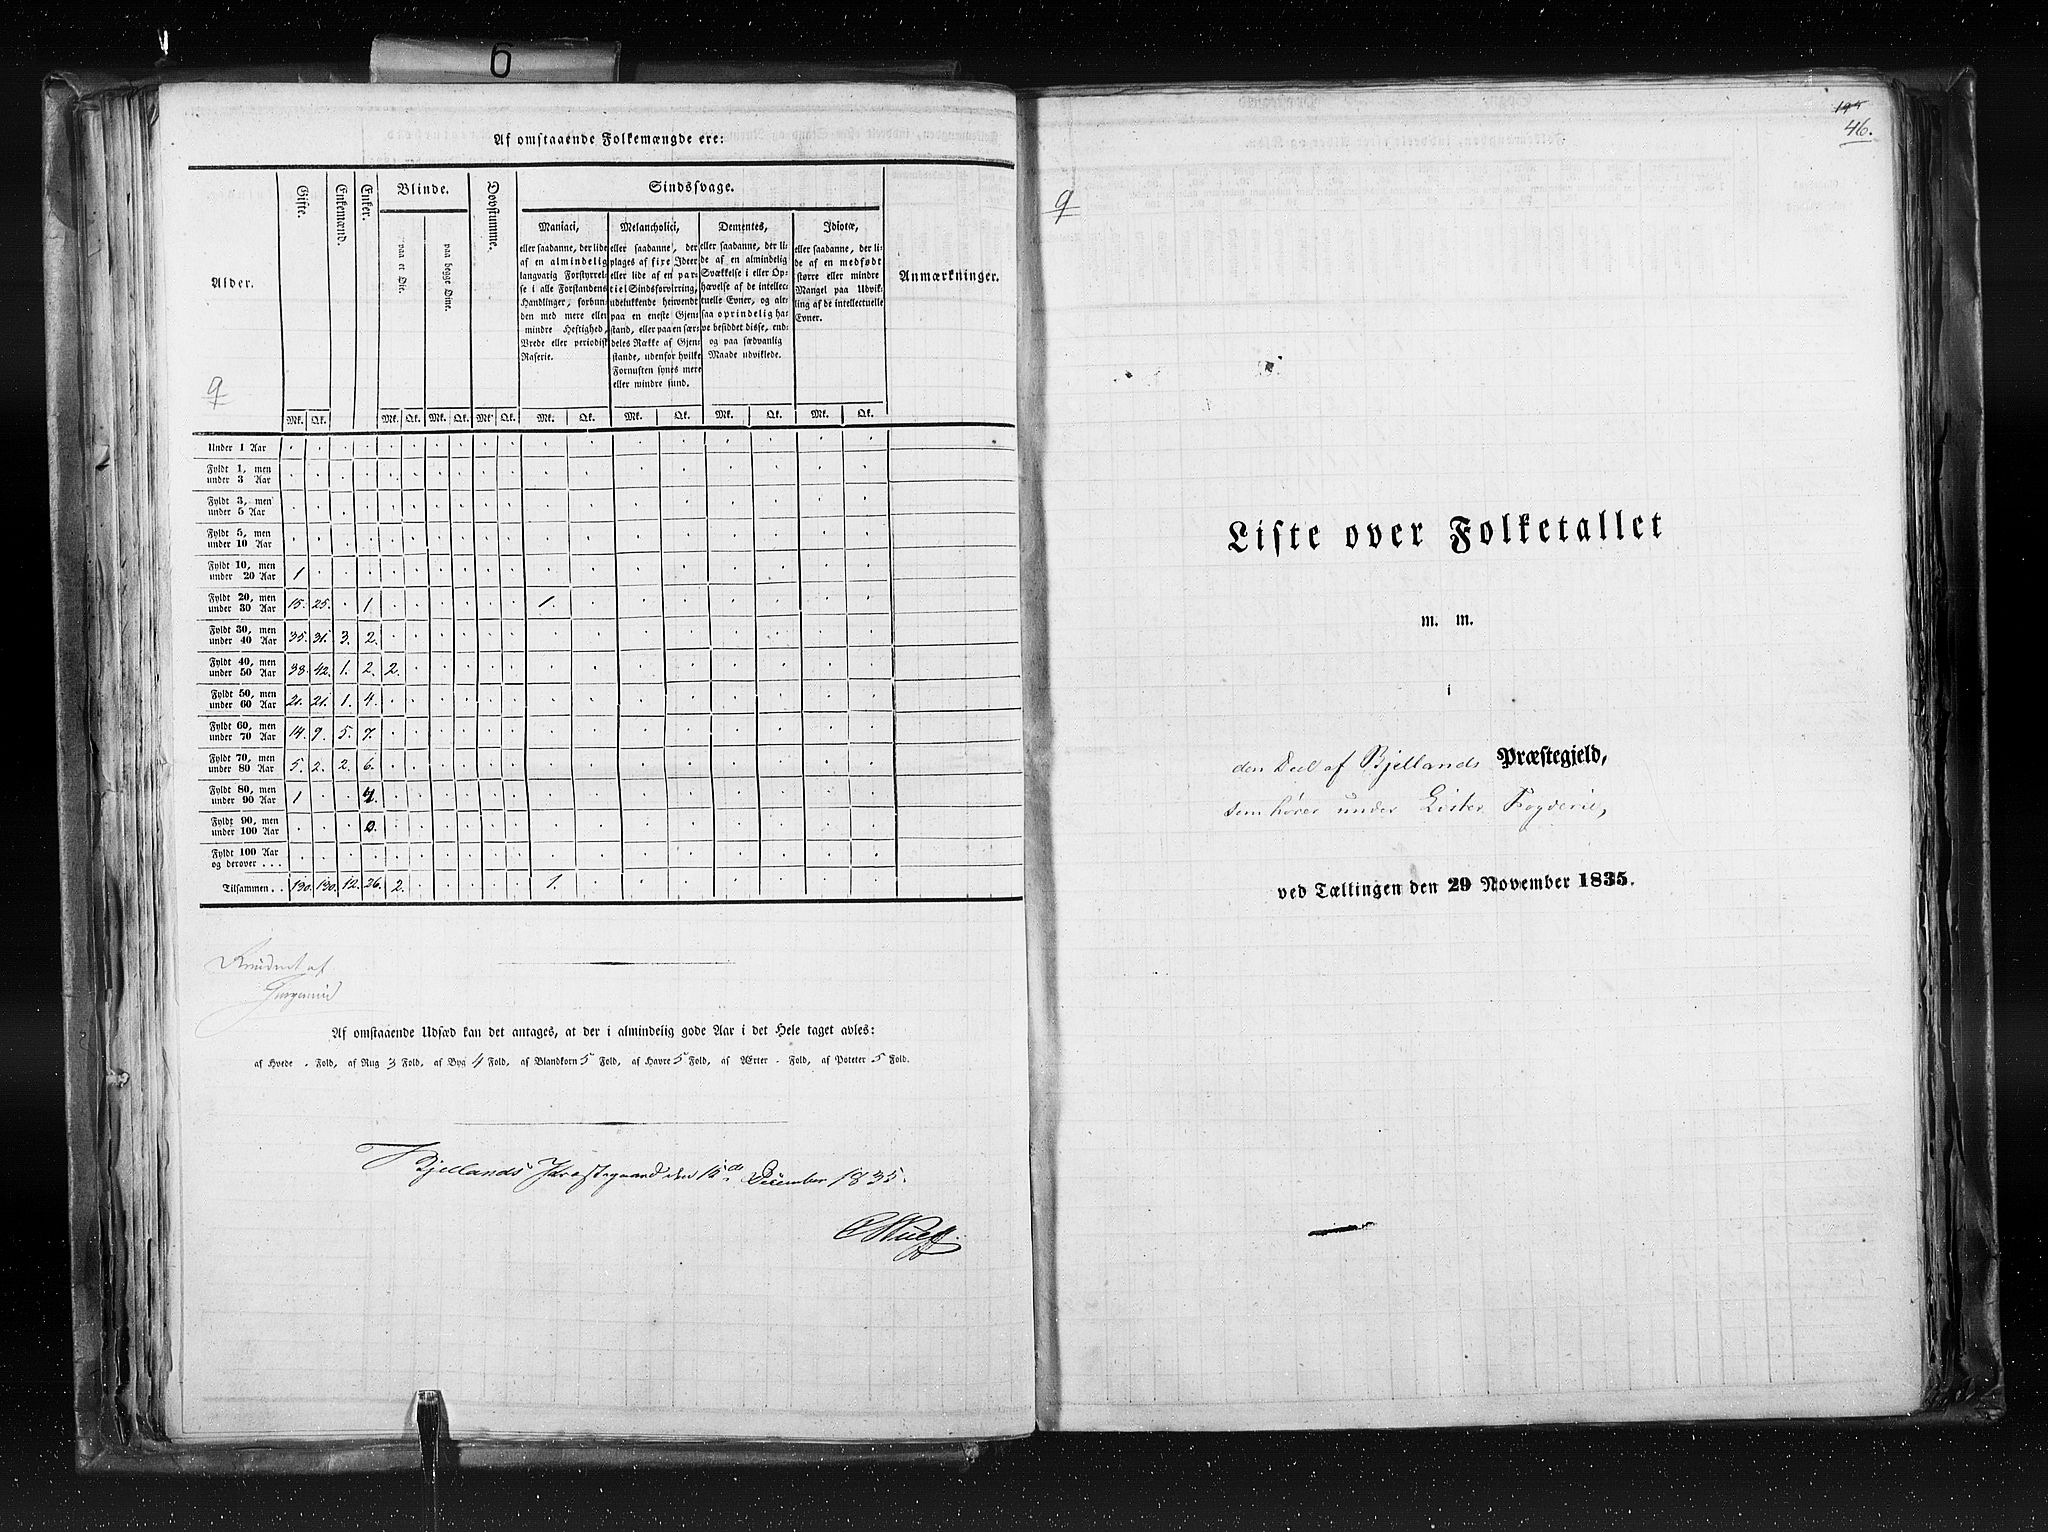 6
Af omstaaende Folkemængde ere:
Alder.
Gifte.
Enkemænd.
Enker.
Blinde.
paa et Øie.
paa begge Øine.
Døvstumme.
Sindssvage.
Maniaci,
eller saadanne, der lide
af en almindelig
langvarig Forstyrrel-
se i alle Forstandens
Handlinger, forbun-
den med mere eller
mindre Heftighed,
Vrede eller periodisk
Raserie.
Melancholici,
eller saadanne, der
plages af fixe Ideer
eller lide af en par-
tiel Sindsforvirring,
udelukkende henvendt
paa en eneste Gjen-
stand, eller paa en sær-
deles Række af Gjen-
stande, udenfor hvilke
Fornuften synes mere
eller mindre sund.
Dementes,
eller saadanne, der li-
de af en almindelig
Svækkelse i eller Op-
hævelse af de intellec-
tuelle Evner, og alt-
saa oprindelig ha-
ve besiddet disse, end-
og paa sædvanlig
Maade udviklede.
Idiotæ,
eller saadanne, der li-
de af en medfødt
større eller mindre
Mangel paa Udvik-
ling af de intellectuelle
Evner.
Anmærkninger.
9
Mk. Qk. Mk. Qk. Mk. Qk. Mk. Qk. Mk. Qk. Mk. Qk. Mk. Qk. Mk. Qk.
Under 1 Aar
Fyldt 1, men
under 3 Aar
Fyldt 3, men
under 5 Aar
Fyldt 5, men
under 10 Aar
Fyldt 10, men
under 20 Aar 1
Fyldt 20, men
under 30 Aar 15. 25. . 1. 1.
Fyldt 30, men
under 40 Aar 35. 31. 3. 2.
Fyldt 40, men
under 50 Aar 38. 42. 1. 2. 2.
Fyldt 50, men
under 60 Aar 21. 21. 1. 4.
Fyldt 60, men
under 70 Aar 14. 9. 5. 7.
Fyldt 70, men
under 80 Aar 5. 2. 2. 6.
Fyldt 80, men
under 90 Aar 1
Fyldt 90, men
under 100 Aar
Fyldt 100 Aar
og derover . . .
Tilsammen . . 130. 130. 12. 26. 2. 1.
Af omstaaende Udsæd kan det antages, at der i almindelig gode Aar i det Hele taget avles:
af Hvede . Fold, af Rug 3 Fold, af Byg 4 Fold, af Blandkorn 5 Fold, af Havre 5 Fold, af Ærter . Fold, af Poteter 5 Fold.
Bjellands Præstegaard den December 1835.
46.
9
Liste over Folketallet
m. m.
i
den Deel af Bjellands Præstegjeld,
som hører under Lister Fogderie,
ved Tællingen den 29 November 1835.